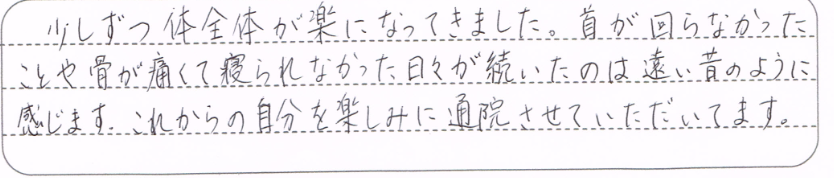 少しずつ体全体が楽になってきました。首が回らなかった
ことや骨が痛くて寝られなかった日々が続いたのは遠い昔のように
感じます。これからの自分を楽しみに通院させていただいてます。